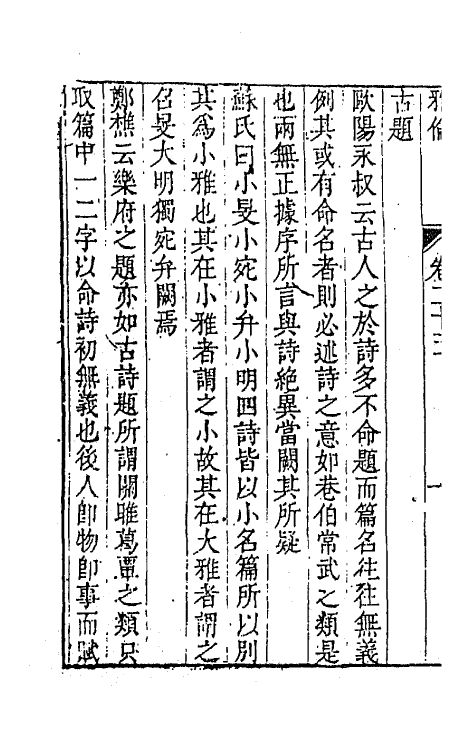 雅倫 卷二十三 一
古題
歐陽永叔云古人之於詩多不命題而篇名往往無義
例其或有命名者則必述詩之意如巷伯常武之類是
也雨無正據序所言與詩絕異當闕其所疑
蘇氏曰小旻小宛小弁小明四詩皆以小名篇所以別
其為小雅也其在小雅者謂之小故其在大雅者謂之
召旻大明獨宛弁闕焉
鄭樵云樂府之題亦如古詩題所謂關雎葛覃之類只
取篇中一二字以命詩初無義也後人卽物卽事而賦